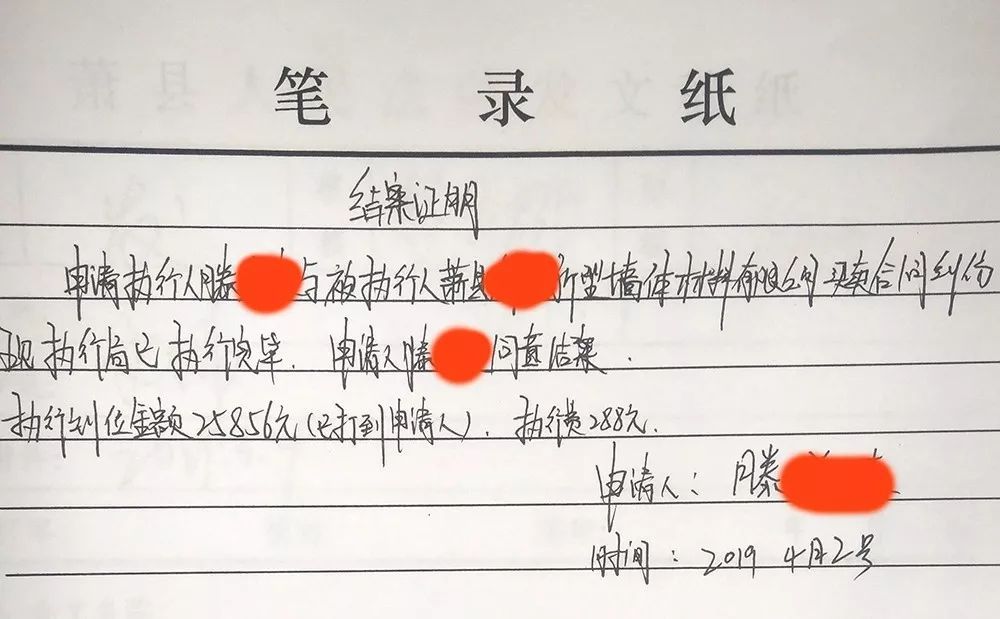 笔录纸
结案证明
申请执行人滕 与被执行人萧县 新型墙体材料有限公司买卖合同纠纷
现执行局已执行完毕. 申请人滕 同意结案.
执行到位金额25856元(已打到申请人). 执行费288元.
申请人: 滕
时间: 2019 4月2号